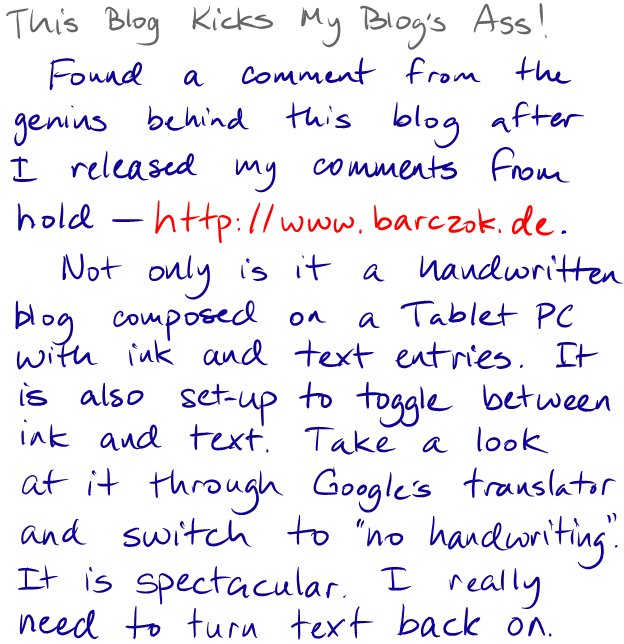 This Blog Kicks My Blog's Ass!
Found a comment from the
genius behind this blog after
I released my comments from
hold — http://www.barczok.de.
Not only is it a handwritten
blog composed on a Tablet PC
with ink and text entries. It
is also set-up to toggle between
ink and text. Take a look
at it through Google's translator
and switch to "no handwriting".
It is spectacular. I really
need to turn text back on.